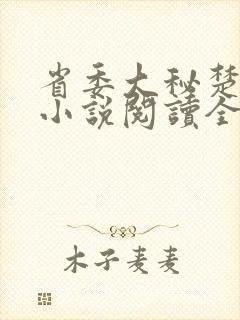 省委大秘楚
小說閱讀全
木子麦麦